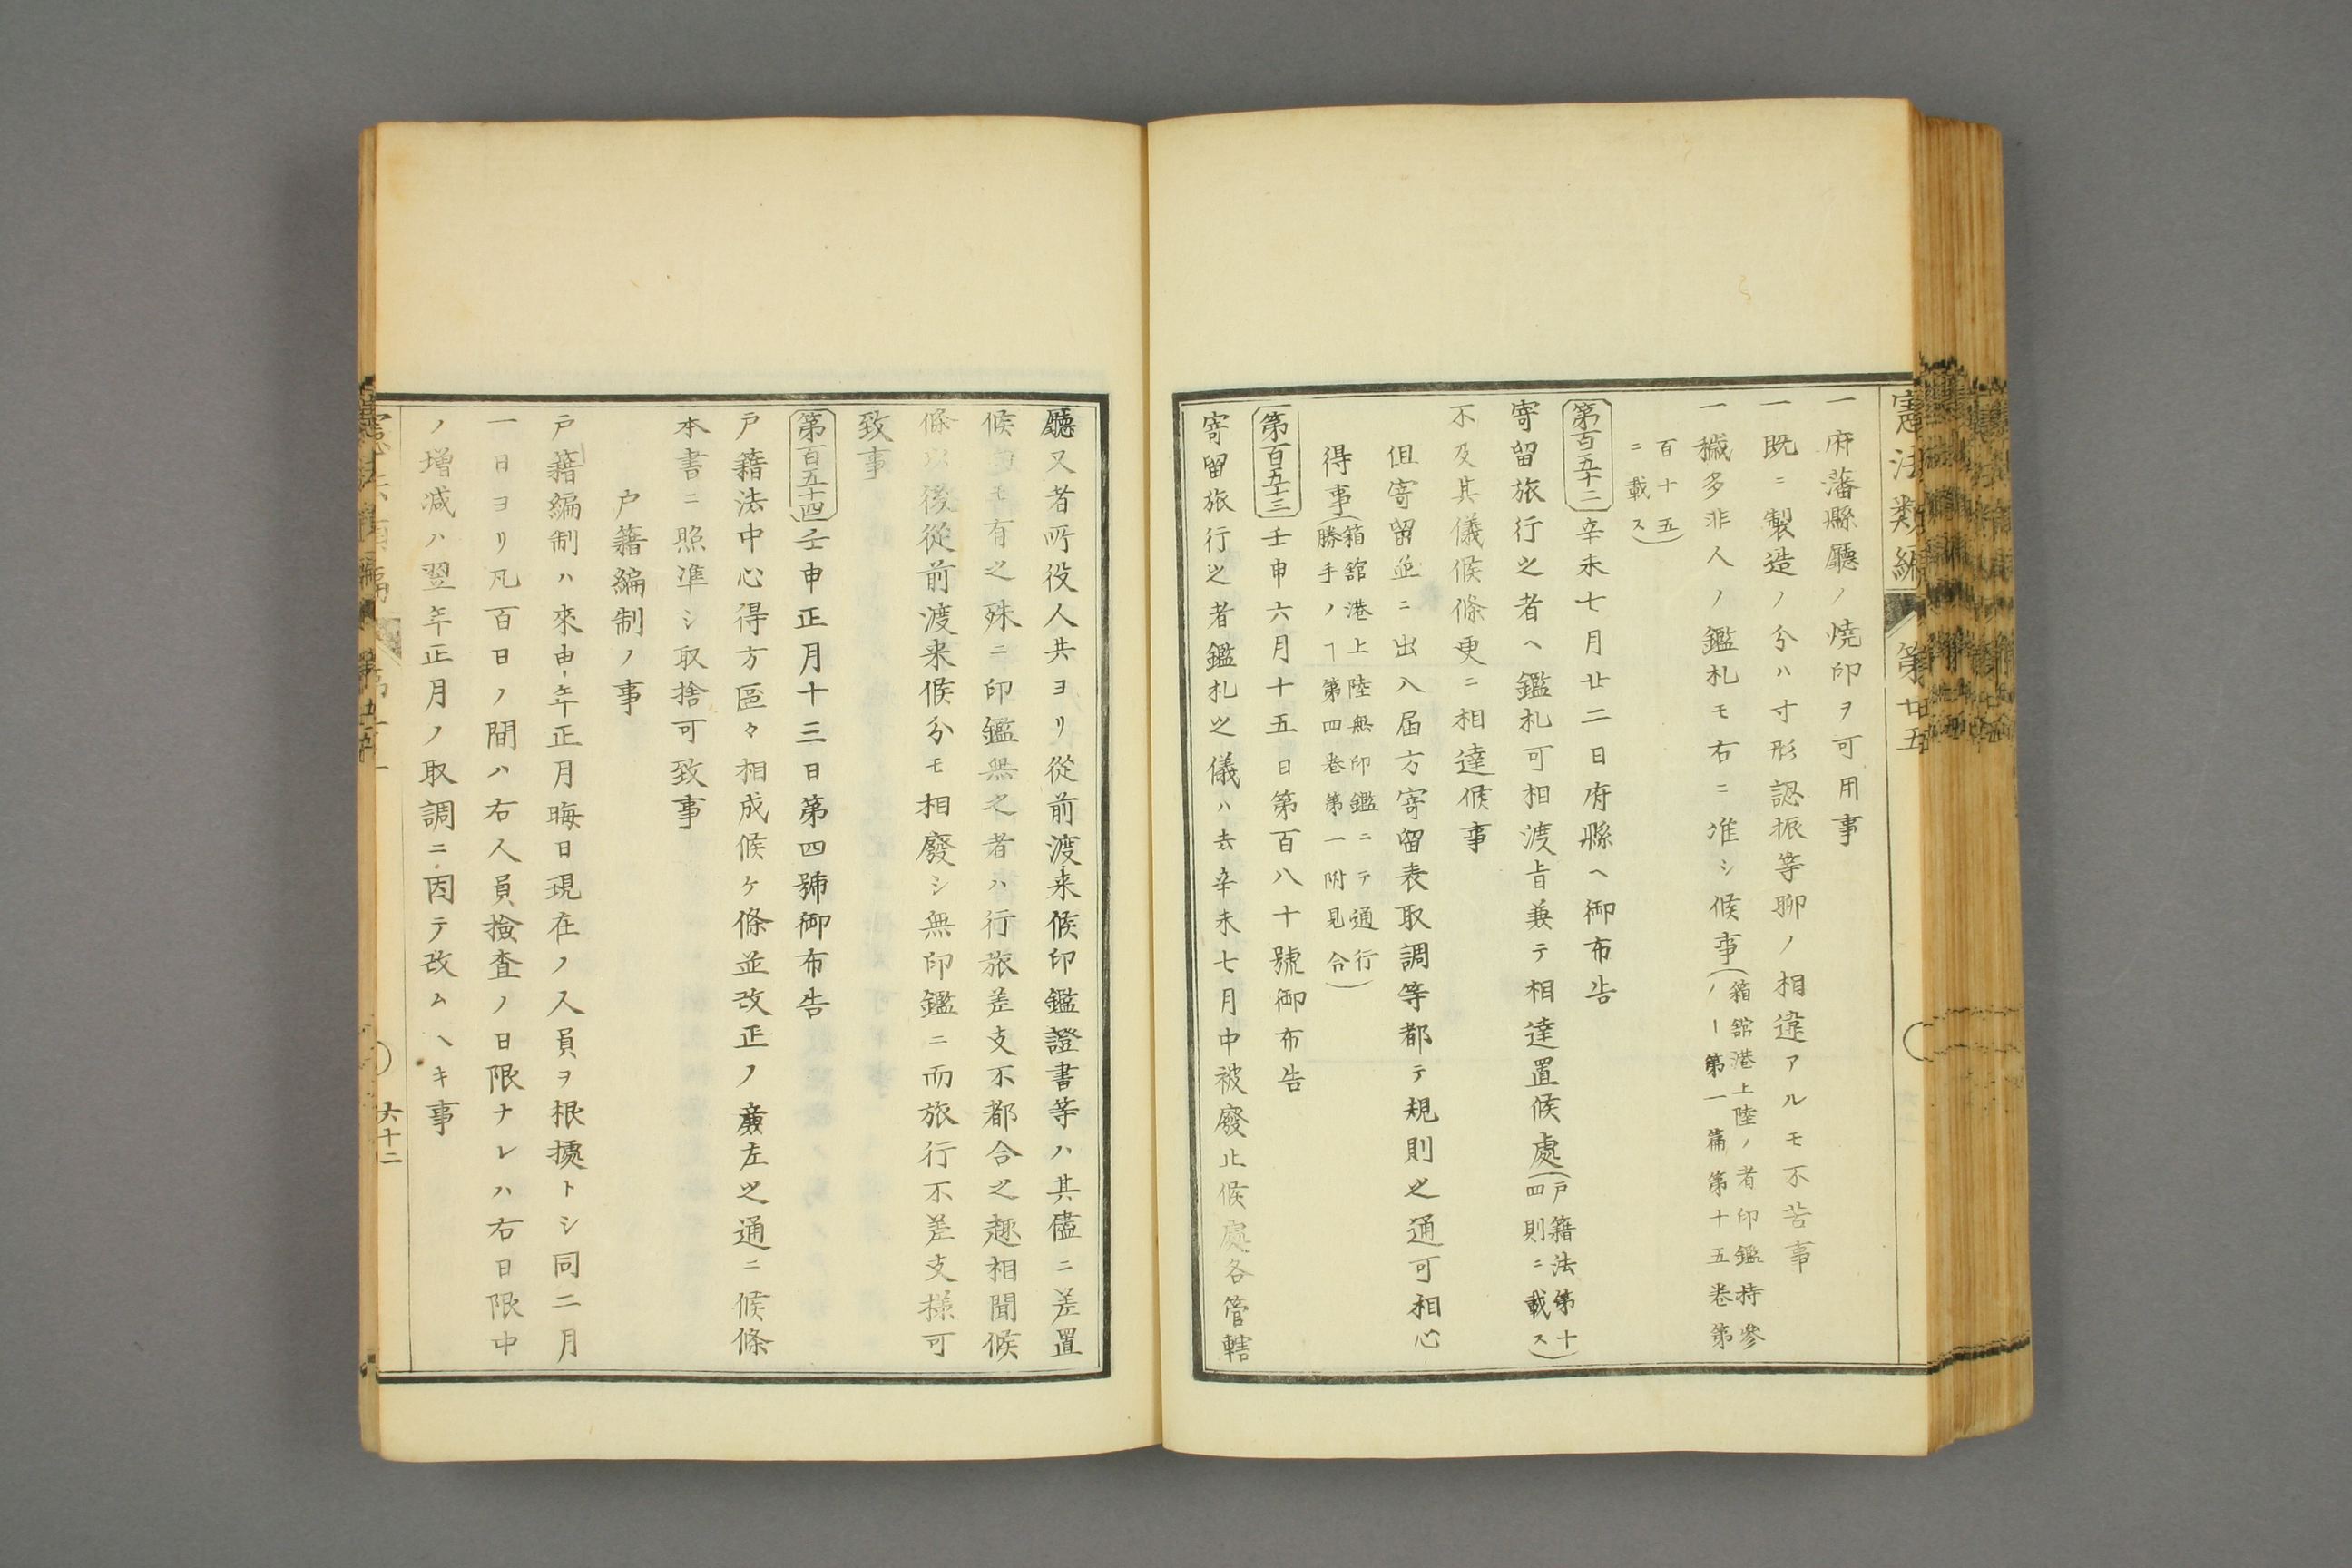 憲法類編 第十五
一府藩縣廳ノ燒印ヲ可用事
一既ニ製造ノ分ハ寸形認振等聊ノ相違アルモ不苦事
一穢多非人ノ鑑札モ右ニ准シ候事(箱舘港上陸ノ者印鑑持參
ノ一第一篇第十五卷第
百十五
ニ載ス)
第百五十二 辛未七月廿二日府縣ヘ御布告
寄留旅行之者ヘ鑑札可相渡旨兼テ相達置候處(戸籍法第十
四則ニ載ス)
不及其儀候條更ニ相達候事
但寄留並ニ出入届方寄留表取調等都テ規則之通可相心
得事(箱舘港上陸無印鑑ニテ通行
勝手ノヿ第四卷第一附見合)
第百五十三 壬申六月十五日第百八十號御布告
寄留旅行之者鑑札之儀ハ去辛未七月中被廢止候處各管轄
廳又者所役人共ヨリ從前渡来候印鑑證書等ハ其儘ニ差置
候モ有之殊ニ印鑑無之者ハ行旅差支不都合之趣相聞候
條以後從前渡来候分モ相廢シ無印鑑ニ而旅行不差支様可
致事
第百五十四 壬申正月十三日第四號御布告
戸籍法中心得方區々相成候ケ條並改正ノ廉左之通ニ候條
本書ニ照準シ取捨可致事
戸籍編制ノ事
戸籍編制ハ來申年正月晦日現在ノ人員ヲ根據トシ同二月
一日ヨリ凡百日ノ間ハ右人員撿査ノ日限ナレハ右日限中
ノ增减ハ翌年正月ノ取調ニ因テ改ムヘキ事
六十二